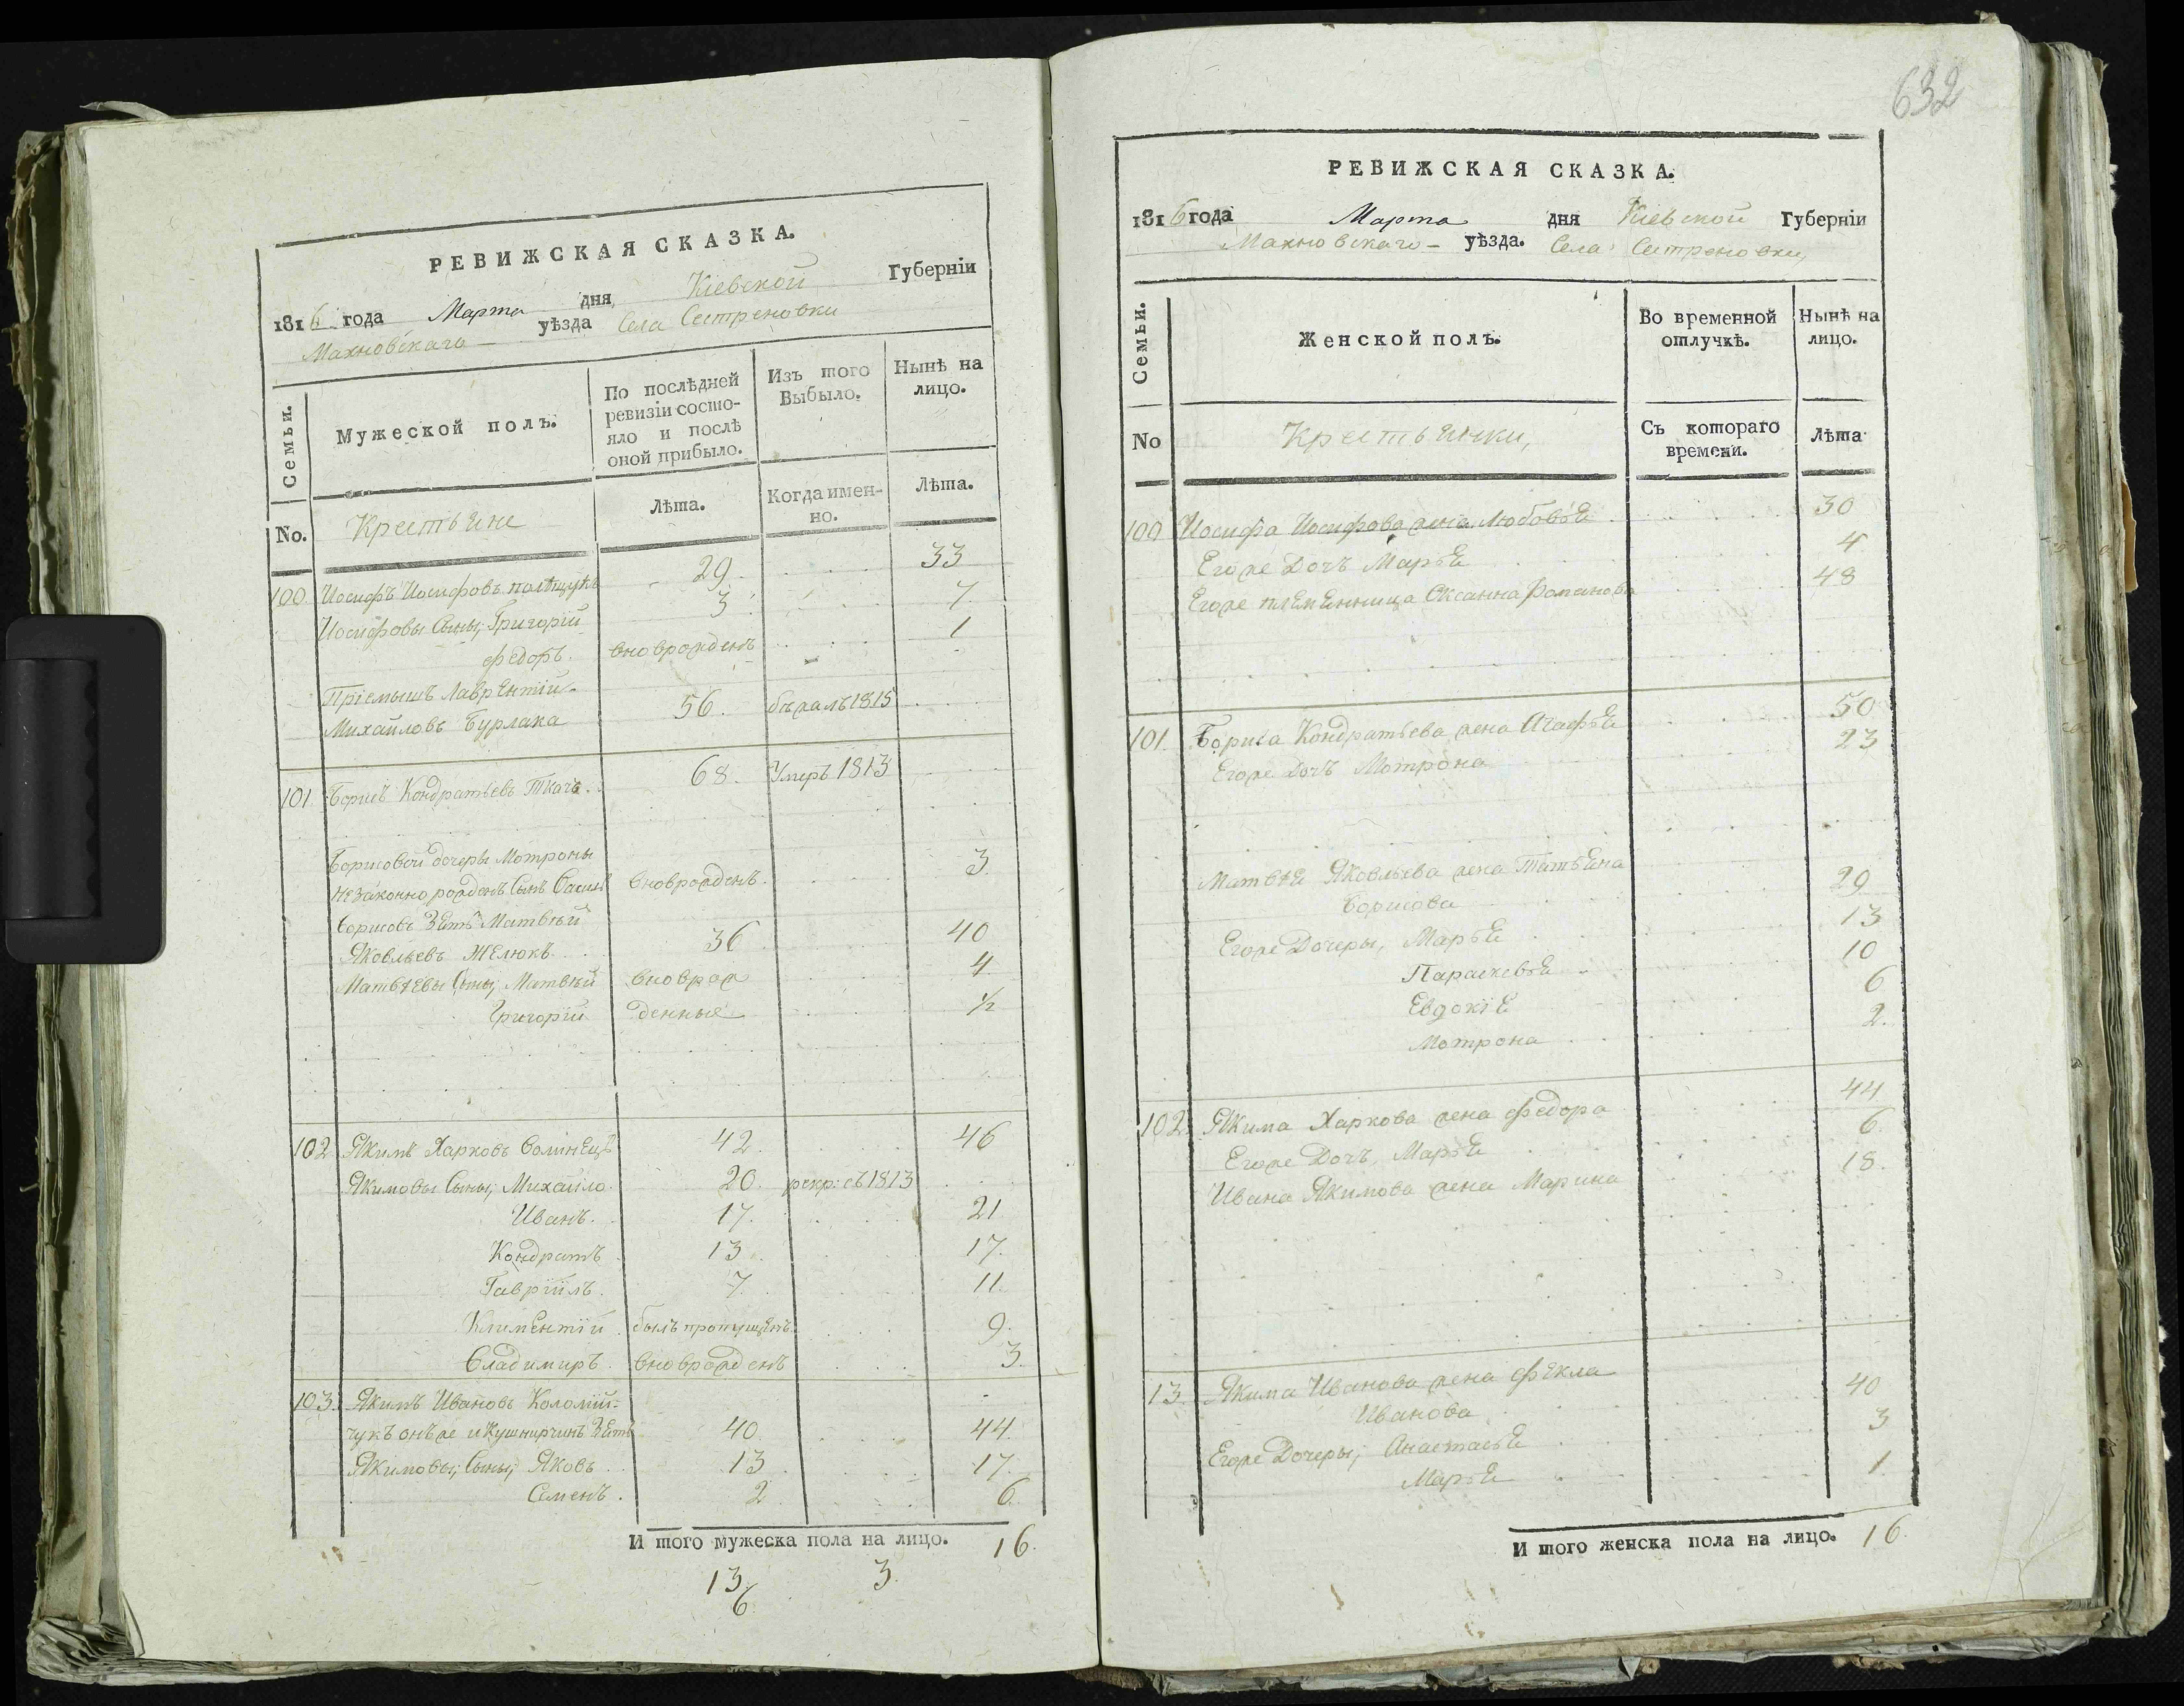 РЕВИЖСКАЯ СКАЗКА.
1816 года Марта дня Кіевской Губерніи
Махновскаго уѣзда Села Сестреновки
Семьи.
Мужеской полъ.
По послѣдней ревизіи состо-
яло и послѣ оной прибыло.
Изъ того Выбыло.
Нынѣ на лицо.
No.
Крестьяне
Лѣта.
Когда имен-
но.
Лѣта.
100 Иосифъ Иосифовъ полѣщукъ 29 33
Иосифовы Сыны, Григорій 3 7
Федоръ. вноврожденъ 1
Пріемышъ Лаврентій
Михайловъ Бурлака 56. бѣжалъ 1815
101 Борисъ Кондратьевъ Ткачъ. 68. Умеръ 1813
Борисовой дочеры Мотроны
незаконно рожденъ Сынъ Василь вноврожденъ. 3.
Борисовъ Зять Матвѣй
Яковльевъ Желюкъ 36 40
Матвѣевы Сыны, Матвѣй вноврож 4
Григорій денные ½
102 Якимъ Харковъ Волинецъ 42. 46
Якимовы Сыны, Михайло 20. рекр: съ 1813
Иванъ. 17. 21
Кондратъ 13. 17.
Гавріилъ. 7. 11.
Климентій былъ пропущенъ. 9.
Владимиръ. вноврожденъ 3.
103. Якимъ Ивановъ Коломій-
чукъ онъ же и Кушнирчинъ Зять 40. 44.
Якимовы, Сыны, Яковъ 13 17.
Семенъ. 2 6.
И того мужеска пола на лицо. 16.
13 3.
6
632
РЕВИЖСКАЯ СКАЗКА.
1816 года Марта дня Кіевской Губерніи
Махновскаго уѣзда. Села Сестреновки,
Семьи.
Женской полъ.
Во временной отлучкѣ.
Нынѣ на лицо.
No
Крестьянки,
Съ котораго времени.
Лѣта
100 Иосифа Иосифова жена Любовья 30
Егоже Дочь Марья 4
Егоже племянница Оксанна Романова 48
101. Бориса Кондратьева жена Агафья 50
Егоже Дочь Мотрона 23
Матвѣя Яковльева жена Татьяна
Борисова 29
Егоже Дочеры, Марья 13
Параскевья 10
Евдокія 6
Мотрона 2.
102. Якима Харкова жена Федора 44
Егоже Дочь Марья 6.
Ивана Якимова жена Марина 18.
13. Якима Иванова жена Фекла
Иванова 40
Егоже Дочеры, Анастасья 3
Марья 1.
И того женска пола на лицо. 16.